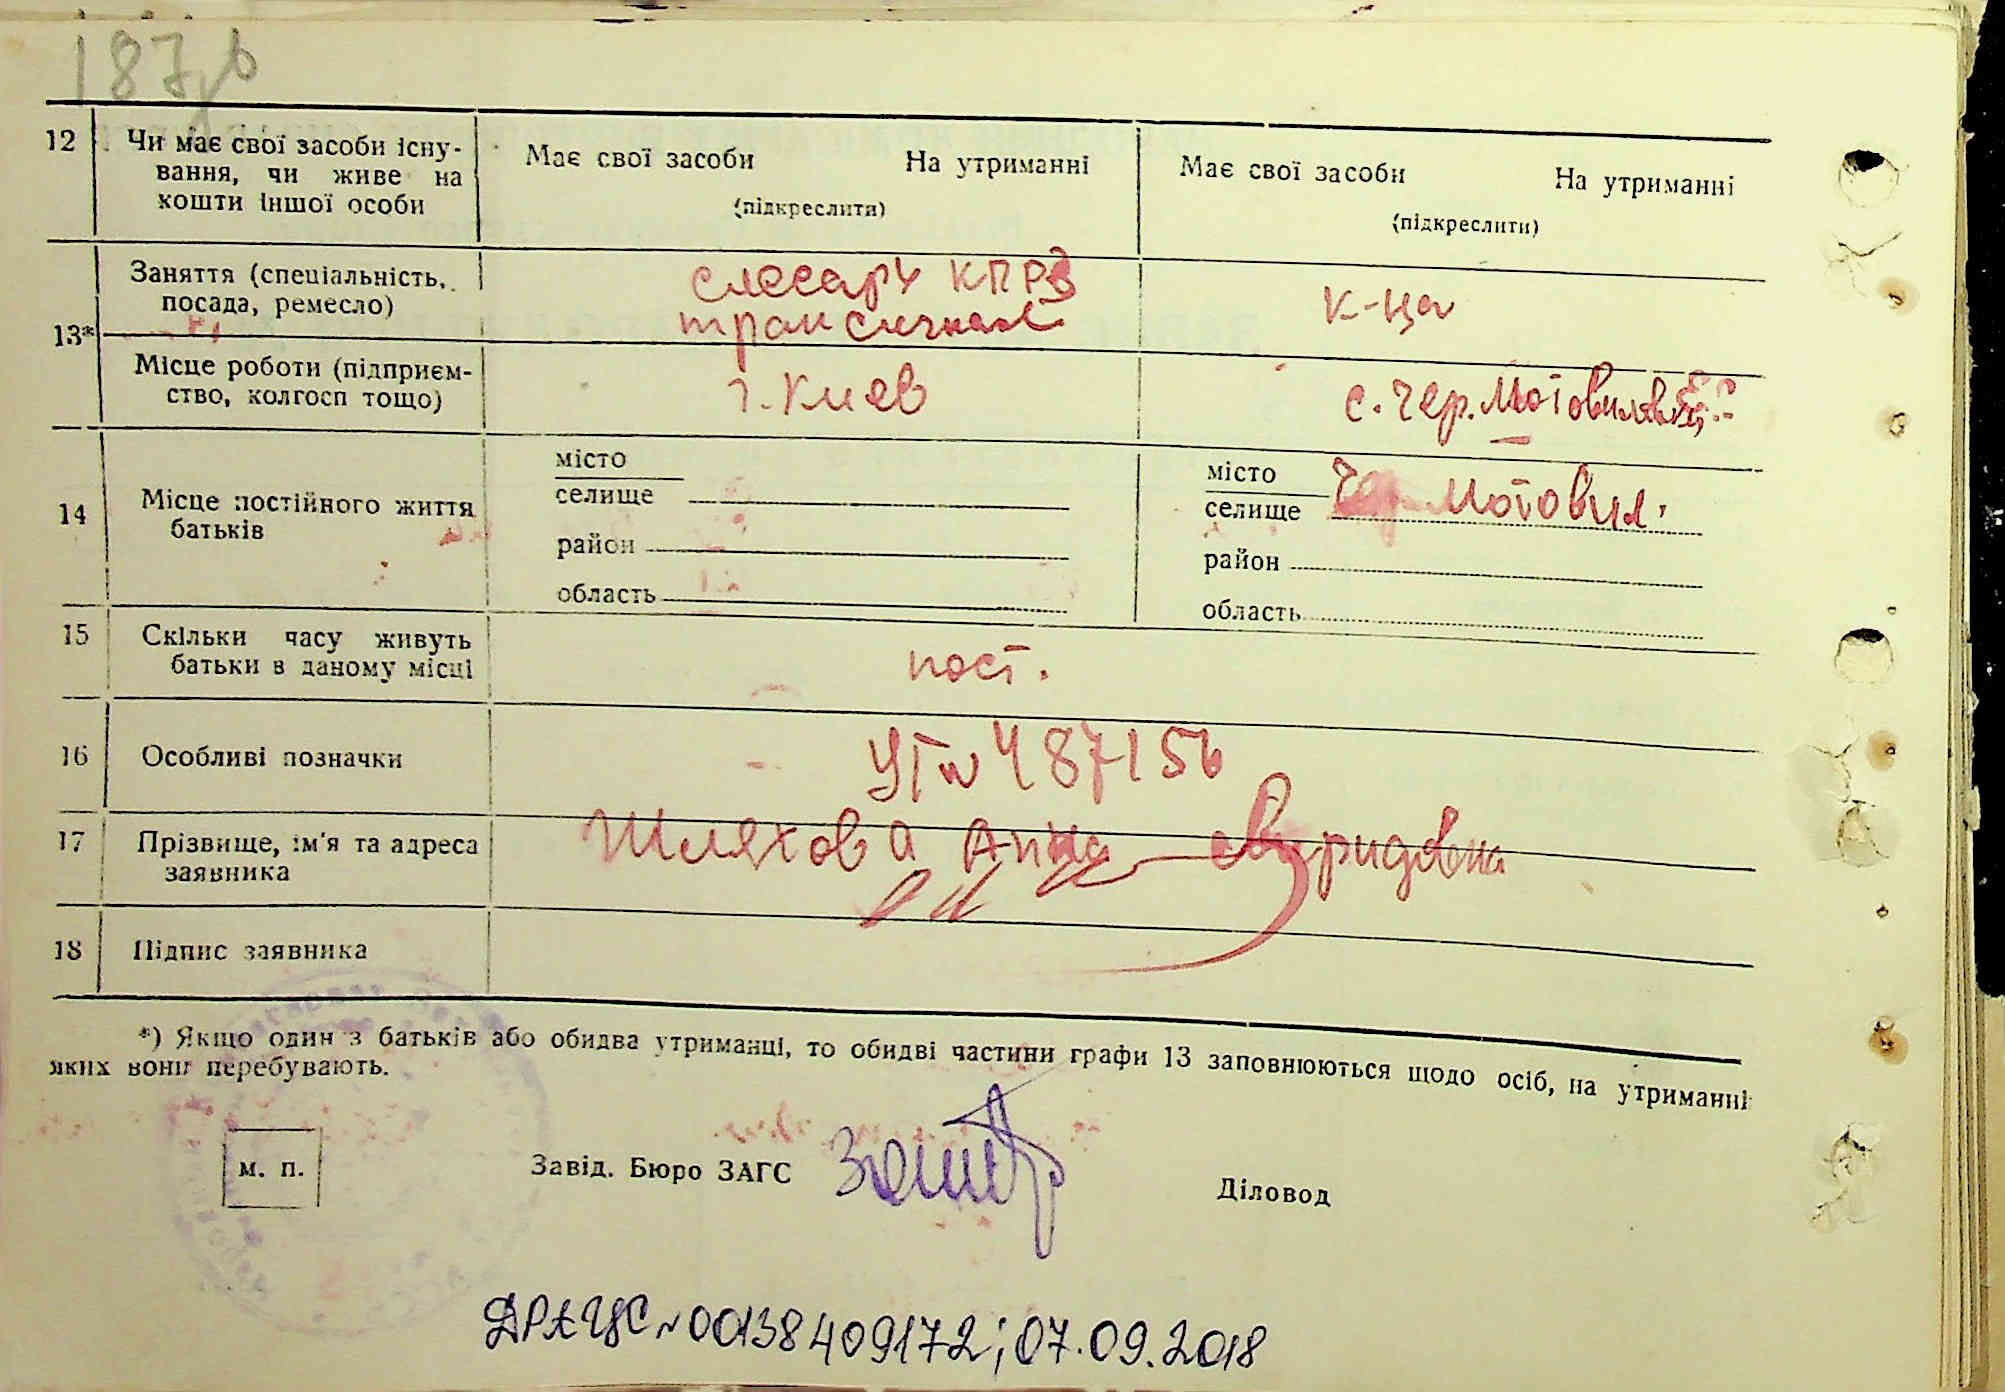 187
12 Чи має свої засоби існу-
вання, чи живе на
кошти іншої особи
Має свої засоби На утриманні
(підкреслити)
Має свої засоби На утриманні
(підкреслити)
13*
Заняття (спеціальність,
посада, ремесло)
слесарь КПРЗ
к-ца
Місце роботи (підприєм-
ство, колгосп тощо)
г. Киев
с. Чер. Мотовиловка
14 Місце постійного життя
батьків
місто
селище
район
область
місто
селище Чер. Мотовил.
район
область
15 Скільки часу живуть
батьки в даному місці
пост.
16 Особливі позначки
17 Прізвище, ім'я та адреса
заявника
Шляхова Анна Свиридовна
18 Підпис заявника
*) Якщо один з батьків або обидва утриманці, то обидві частини графи 13 заповнюються щодо осіб, на утриманні
яких вони перебувають.
м. п.
Завід. Бюро ЗАГС
Діловод
ДРАЦС № 00138409172; 07.09.2018